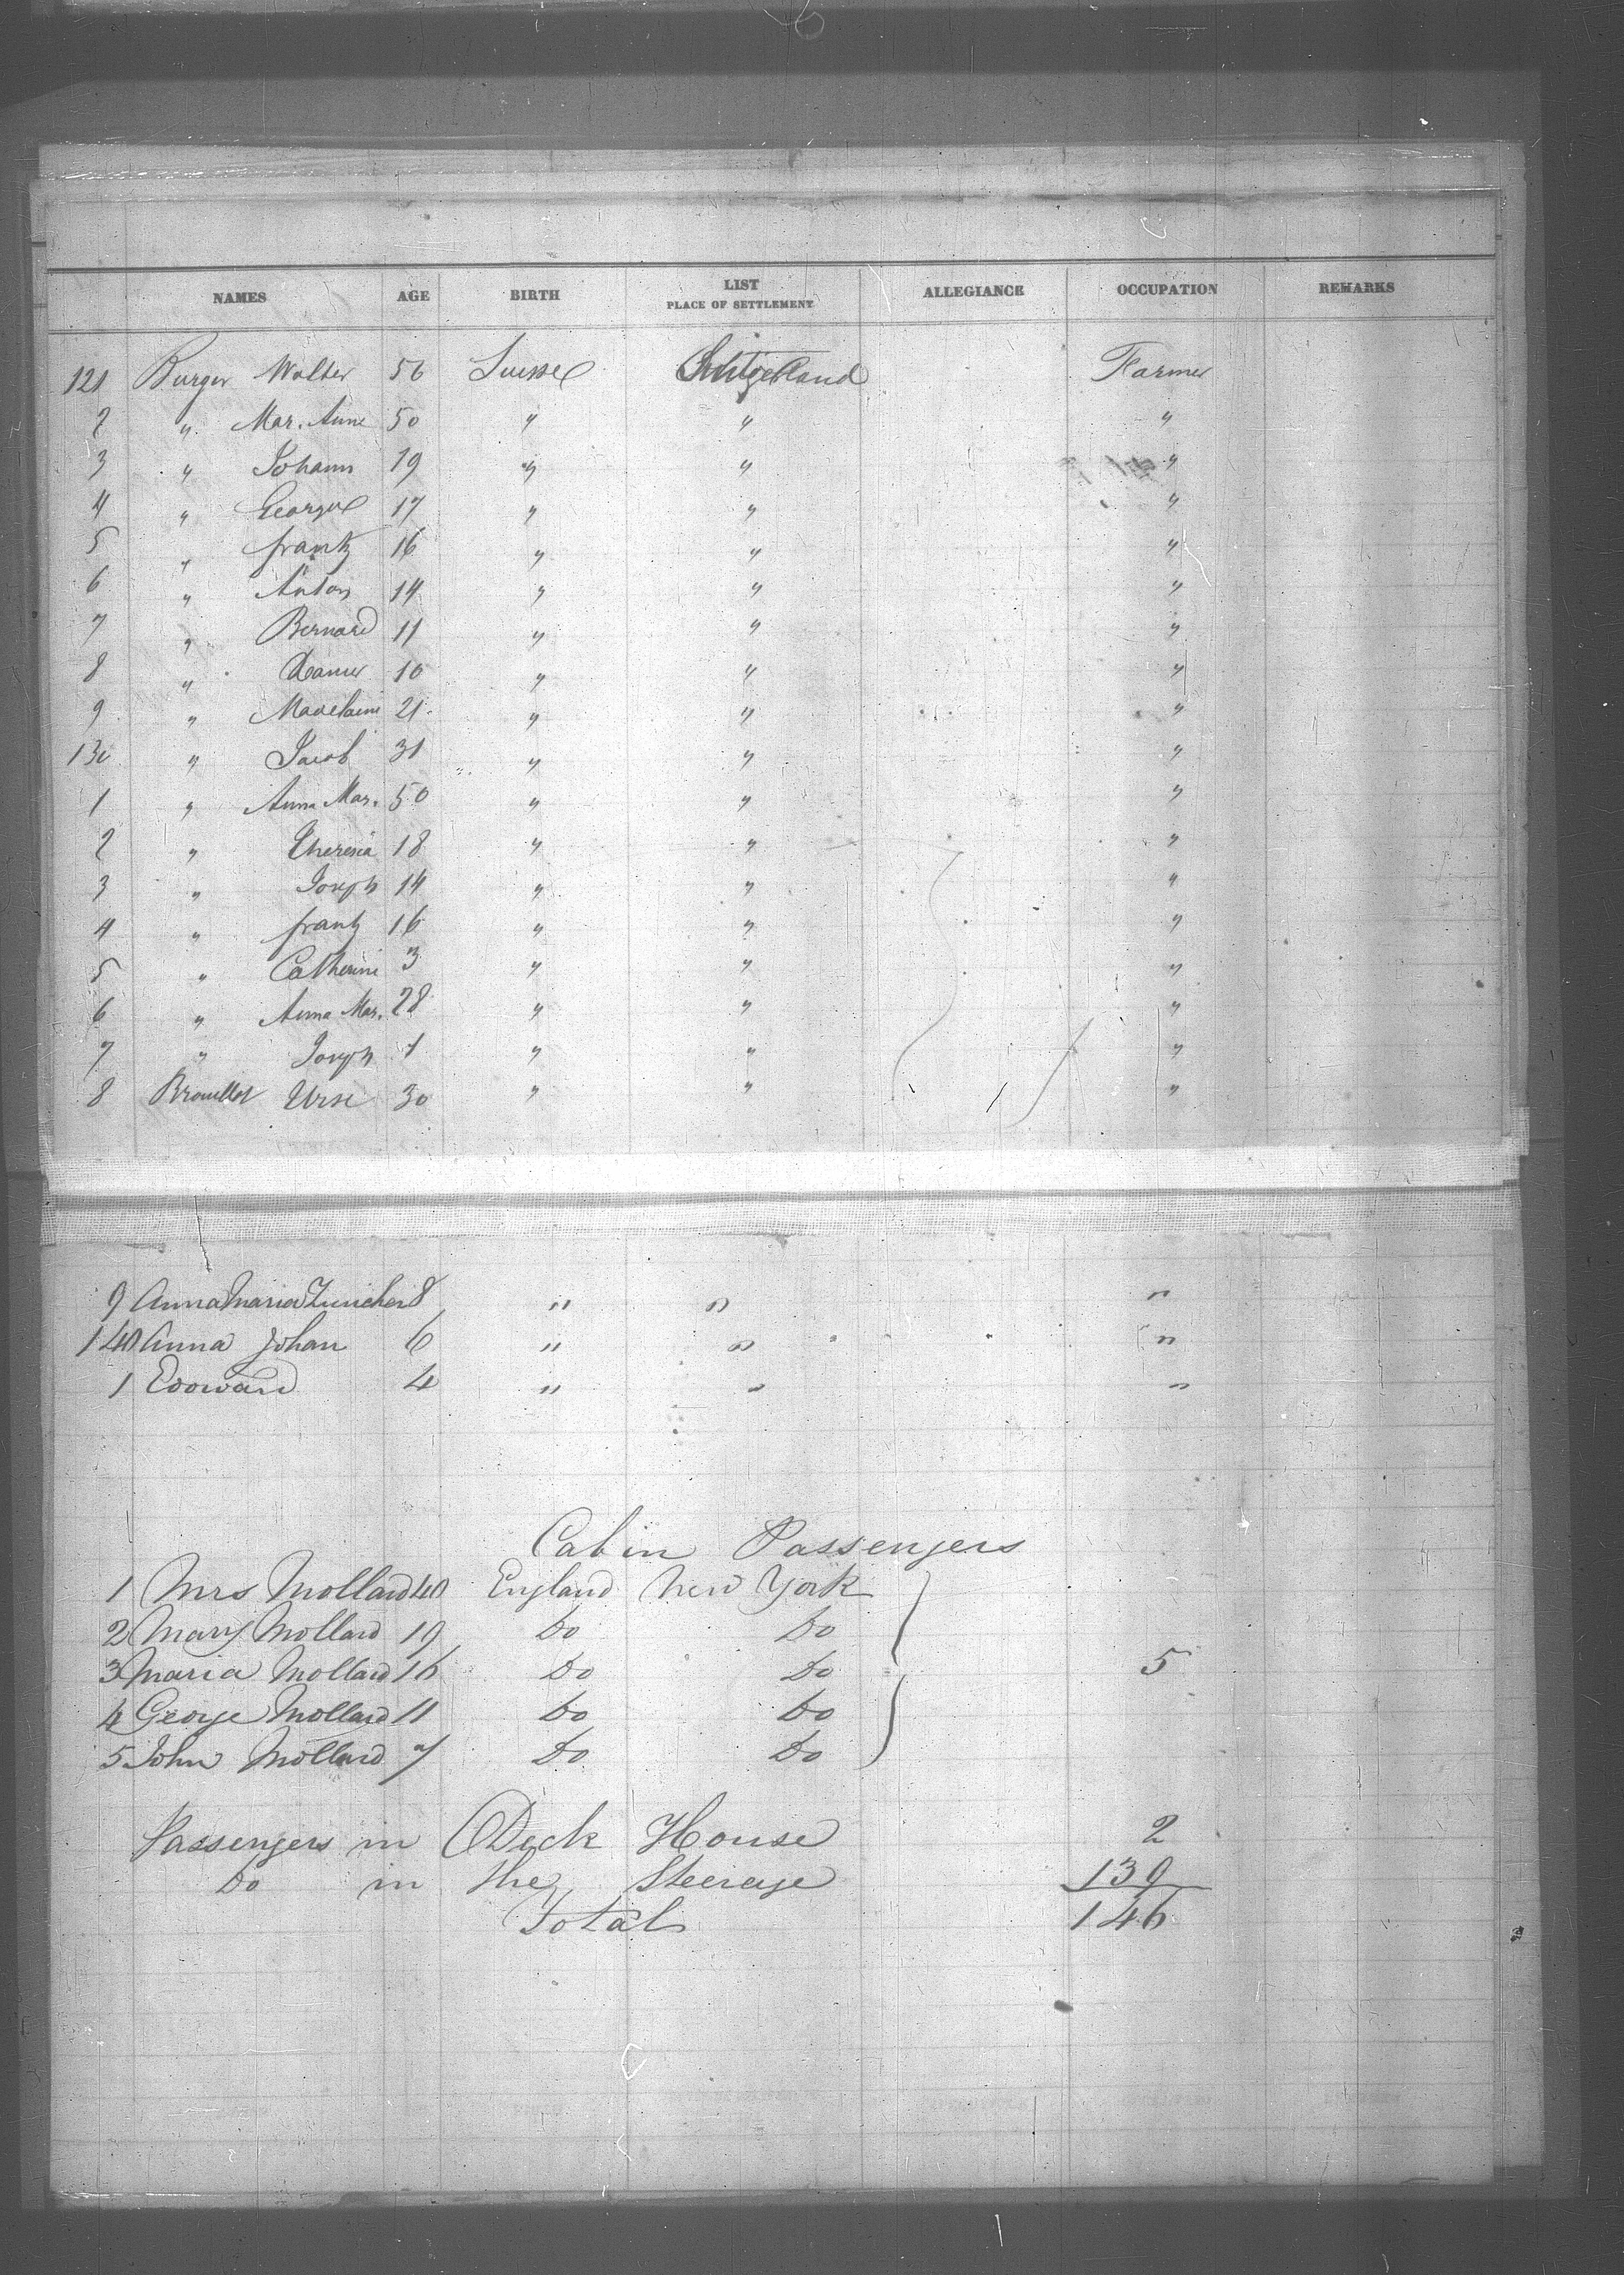 NAMES AGE BIRTH LIST PLACE OF SETTLEMENT ALLEGIANCE OCCUPATION REMARKS
121 Burger Walter 56 Suisse Farmer
2 " Mar. Anne 50 " " "
3 " Johann 19 " " "
4 " George 17 " " "
5 " frantz 16 " " "
6 " Anton 14 " " "
7 " Bernard 11 " " "
8 " 10 " " "
9 " Madelaine 21 " " "
130 " Jacob 31 " " "
1 " Anna Mar. 50 " " "
2 " Theresia 18 " " "
3 " Joseph 14 " " "
4 " frantz 16 " " "
5 " Catherine 3 " " "
6 " Anna Mar. 28 " " "
7 " Joseph 1 " " "
8 Brouillot Urse 30 " " "
9 Anna Maria 8 " " "
140 Anna Johan 6 " " "
1 Edward 4 " " "
Cabin Passengers
1 Mrs Mollard 40 England New York
2 Mary Mollard 19 Do Do
3 Maria Mollard 16 Do Do 5
4 George Mollard 11 Do Do
5 John Mollard 7 Do Do
Passengers in Deck House 2
Do in the Steerage 139
Total 146